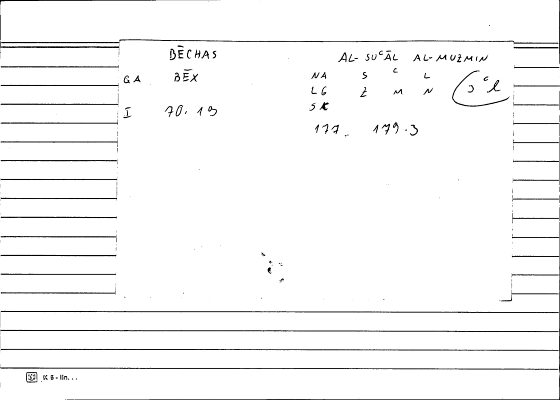 BĒCHAS
GA BĒX
I 70. 19
AL-SUᶜĀL AL-MUZMIN
NA S ᶜ L
LG Z M N
SK
sᶜl
177. 179.3
K 6 - lin. . .